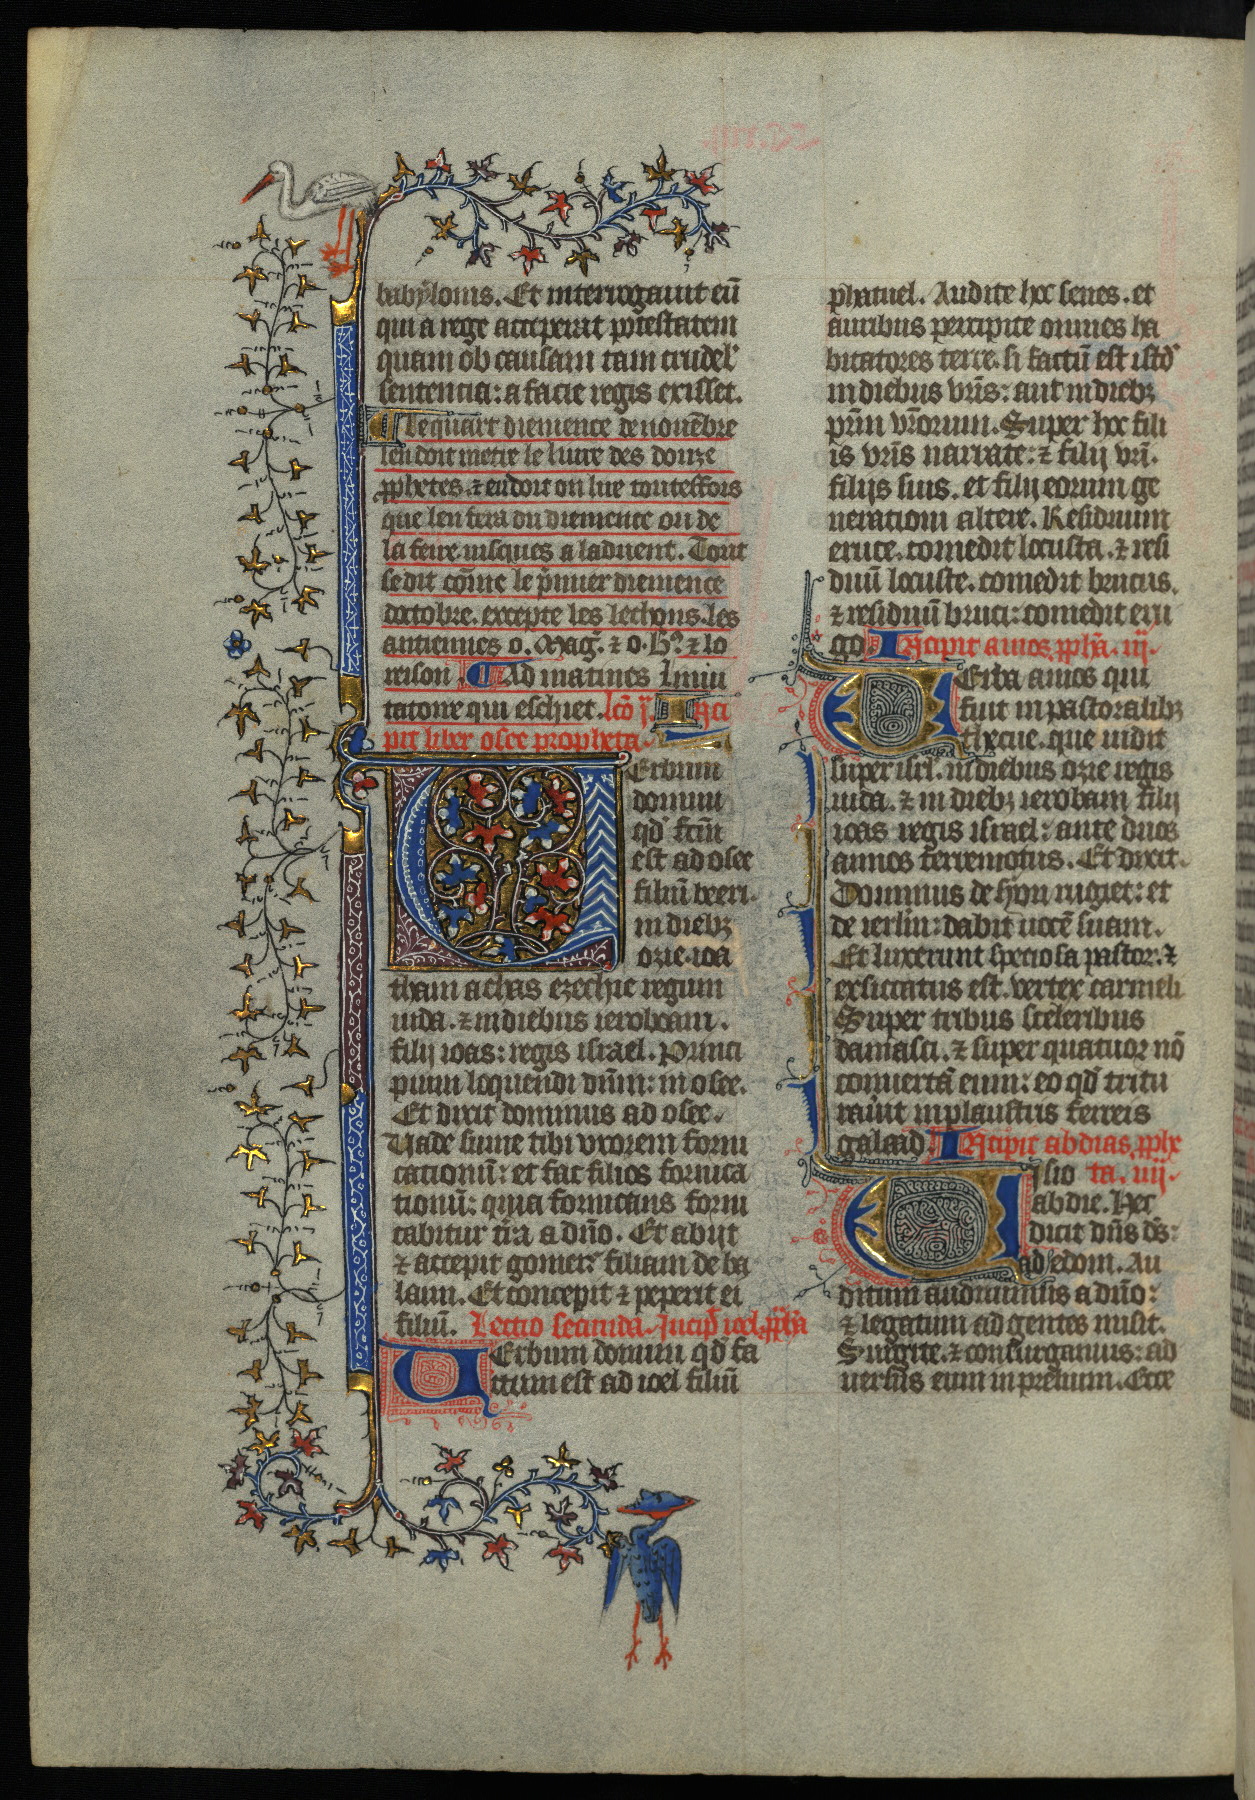 babylonis. Et interrogauit eū
qui a rege acceperat potestatem
quam ob causam tam crudel'
sentencia: a facie regis exisset.
Le quart diemence de nouēbre
len doit metre le liure des douze
ꝓphetes. ⁊ en doit on lire toutesfois
que len fera du diemence ou de
la ferie. iusques a laduent. Tout
se dit cōme le p̄mier diemence
doctobre. excepte les lechons. les
antiennes o. Mag̃. ⁊ o. B. ⁊ lo
reison. Ad matines Inui
tatoire qui eschiet. lcō j. Inci
pit liber osee propheta.
Uerbum
domini
qd̄ fc̄m
est ad osee
filiū beeri.
in dieb⁊
ozie. ioa
tham achas ezechie regum
iuda. ⁊ in diebus ieroboam.
filij ioas: regis israel. Princi
pium loquendi dn̄m: in osee.
Et dixit dominus ad osee.
Uade sume tibi vxorem forni
cationū: et fac filios fornica
tionū: quia fornicans forni
cabitur t̄ra a dn̄o. Et abijt
⁊ accepit gomer: filiam de ba
laim. Et concepit ⁊ peperit ei
filiū. Lectio secunda. Incip̄ ioel. ꝓph̄a
Uerbum domini qd̄ fa
ctum est ad ioel filiū
phatuel. Audite hec senes. et
auribus percipite omnes ha
bitatores terre. si factū est istd̄
in diebus vr̄is: aut in dieb⁊
pr̄m vr̄orum. Super hoc fili
is vr̄is narrate: ⁊ filij vr̄i.
filijs suis. et filij eorum ge
nerationi altere. Residuum
eruce. comedit locusta. ⁊ resi
duū locuste. comedit brucus.
⁊ residuū bruci: comedit eru
go. Incipit amos ꝓph̄a. iij.
Uerba amos qui
fuit in pastoralib⁊
thecue. que uidit
super isrl. in diebus ozie regis
iuda. ⁊ in dieb⁊ ieroboam filij
ioas regis israel: ante duos
annos terremotus. Et dixit.
Dominus de syon rugiet: et
de ierlm̄: dabit uocē suam.
Et luxerunt speciosa pastor. ⁊
exsiccatus est. vertex carmeli
Super tribus sceleribus
damasci. ⁊ super quatuor nō
conuertā eum: eo qd̄ tritu
rau̇it in plaustris ferreis
galaad. Incipit abdias. ꝓphe
Uisio ta. iiij.
abdie. Hec
dicit dn̄s ds̄:
ad edom. Au
ditum audiuimus a dn̄o:
⁊ legatum ad gentes misit.
Surgite. ⁊ consurgamus: ad
uersus eum in prelium. Ecce